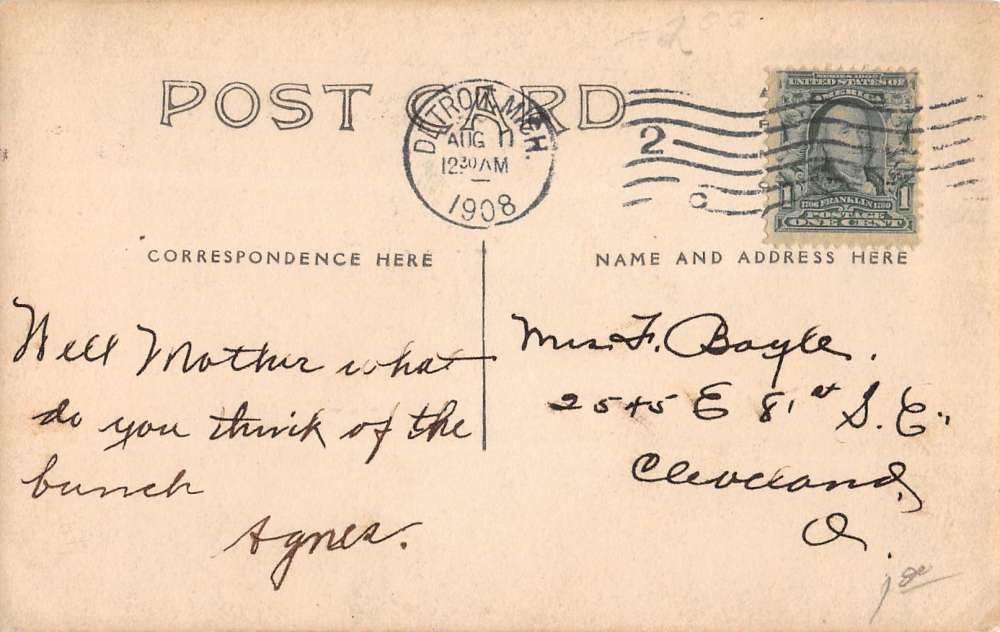 POST CARD
DETROIT, MICH.
AUG 11
12 30 AM
1908
2
C
SERIES 1902
UNITED STATES OF
AMERICA
1 1
1706 FRANKLIN 1790
POSTAGE
ONE CENT
CORRESPONDENCE HERE
Well Mother what
do you think of the
bunch
Agnes.
NAME AND ADDRESS HERE
Mrs. F. Boyle.
2545 E 81st S. E.,
Cleveland,
O.